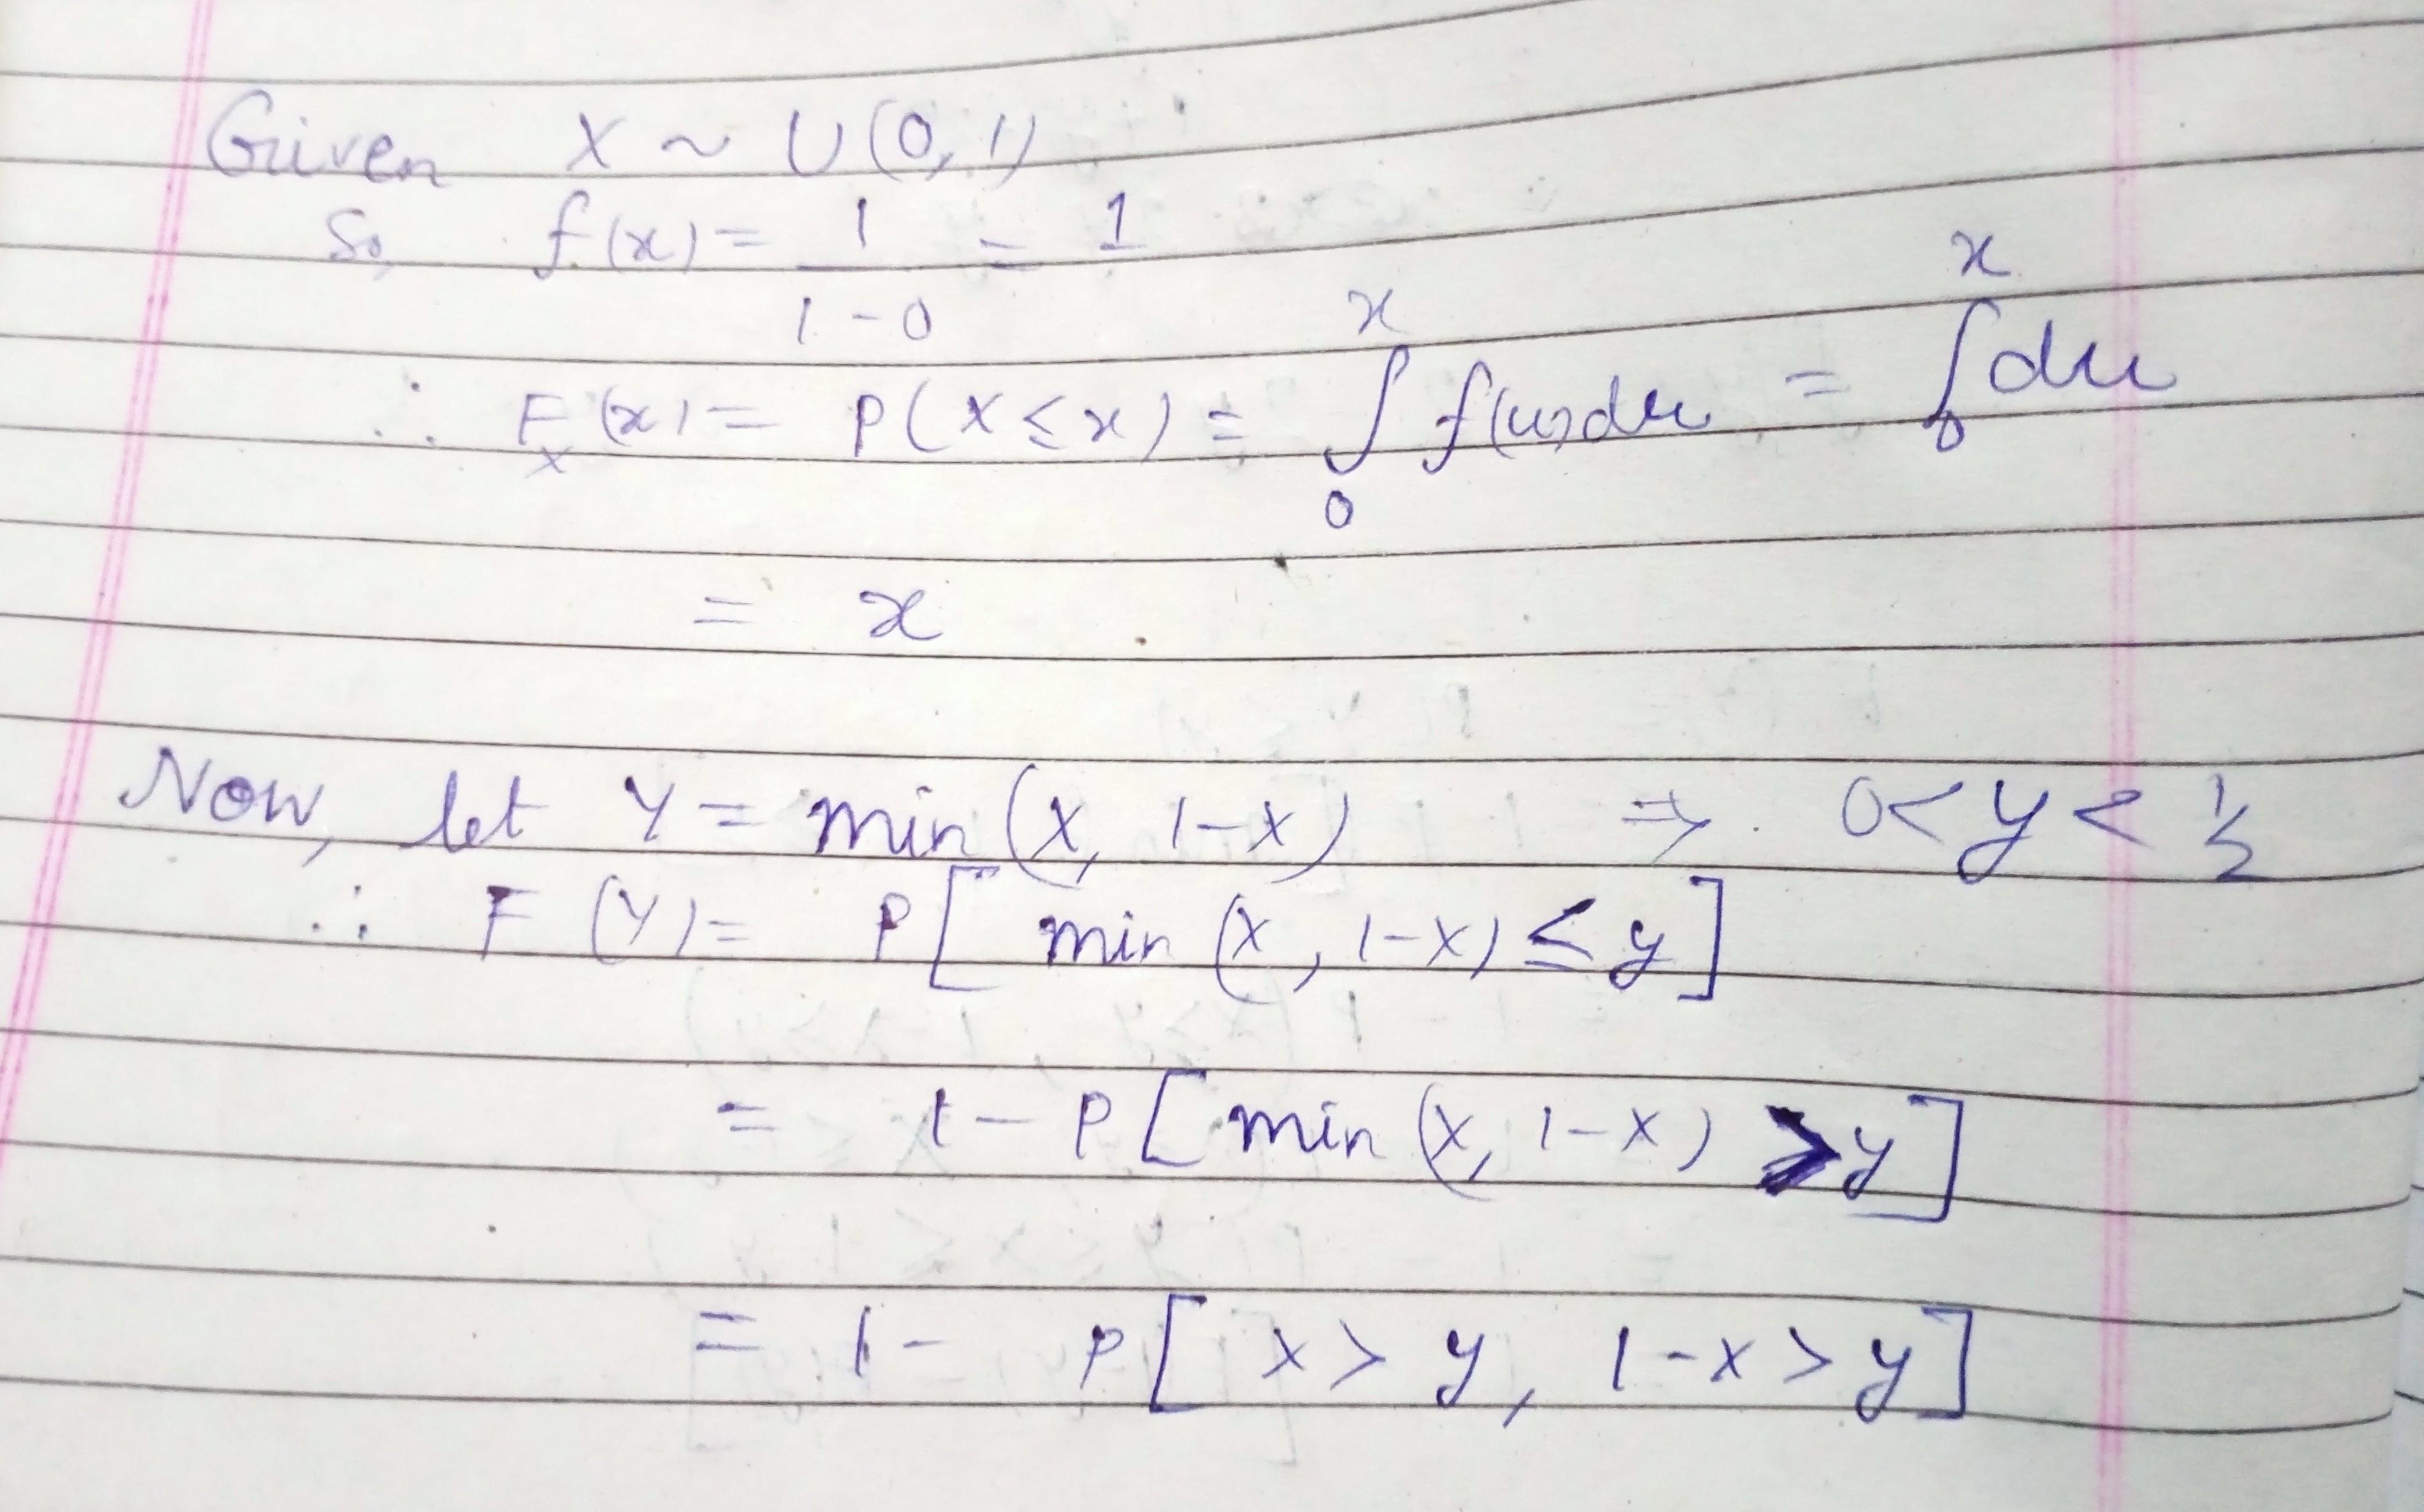 Given X ~ U(0,1)
So, f(x) = 1/(1-0) = 1
∴ F_X(x) = P(X ≤ x) = ∫_0^x f(u)du = ∫_0^x du
= x
Now, let Y = min(X, 1-X) ⇒ 0 < y < 1/2
∴ F(Y) = P[min(X, 1-X) ≤ y]
= 1 - P[min(X, 1-X) > y]
= 1 - P[X > y, 1-X > y]